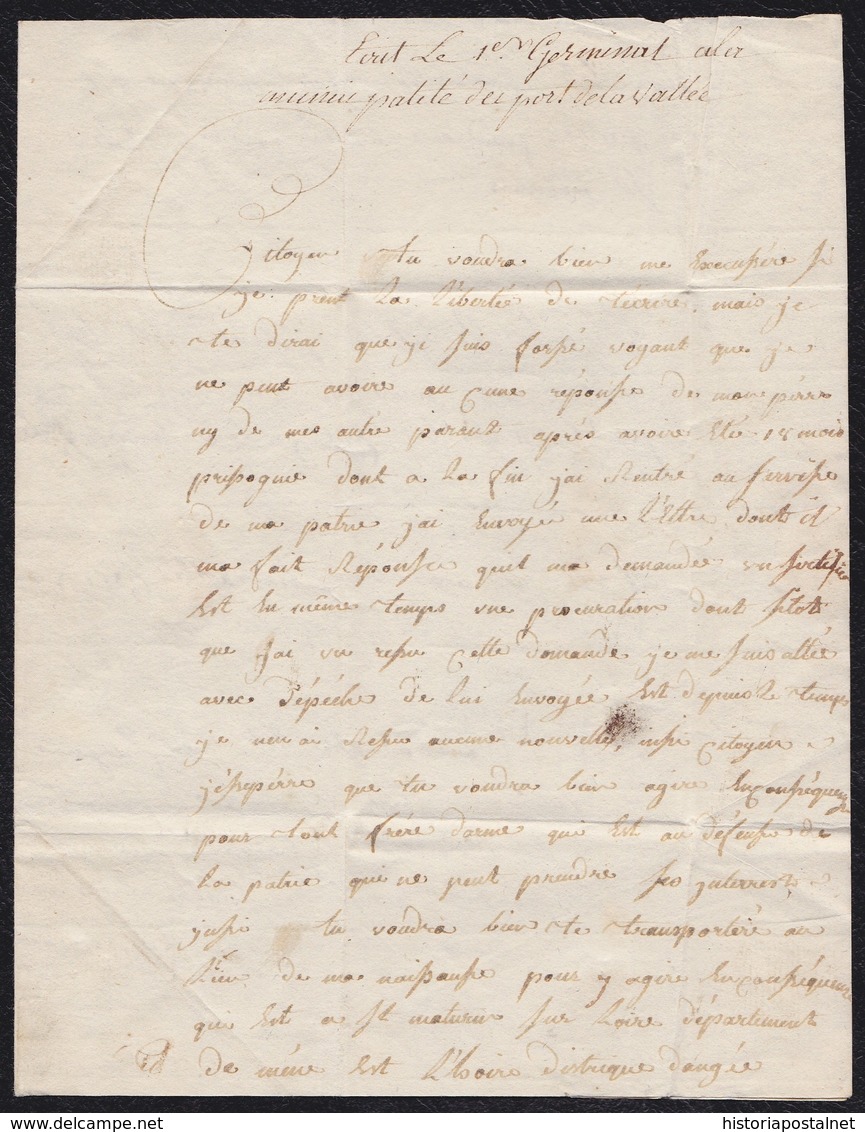 Ecrit Le 1er Germinal a la
municipalité du port de la vallée
Citoyen tu voudra bien me Execusére si
je prent La Liberté de técrire, mais je
te dirai que ji suis forsé voyant que je
ne peut avoire au cune réponse de mon pérre
ny de mes autre parant aprés avoire Eté 18 mois
prisognié dont a La fin jai Rentré au servise
de ma patrie jai Envoyée une Léttre dont il
ma fait Réponse quil ma demandée un sertifica
Est En même temps une procuration dont sitot
que Jai vu resu cette demande je me suis allée
avec dépéche de lui Envoyée Est depuis le temps
je nen ai Resu aucune nouvelle, insi Citoyen
jéspérre que tu voudra bien agire En conséquence
pour tout frére darme qui Est au défense de
La patrie qui ne peut prendre ses interrest
insi tu voudra bien te transportéré au
Lieu de ma naissanse pour y agire En conséquence
qui Est a St maturin sur Loire département
de méne Est Léhoire distrique dangée
historiapostalnet